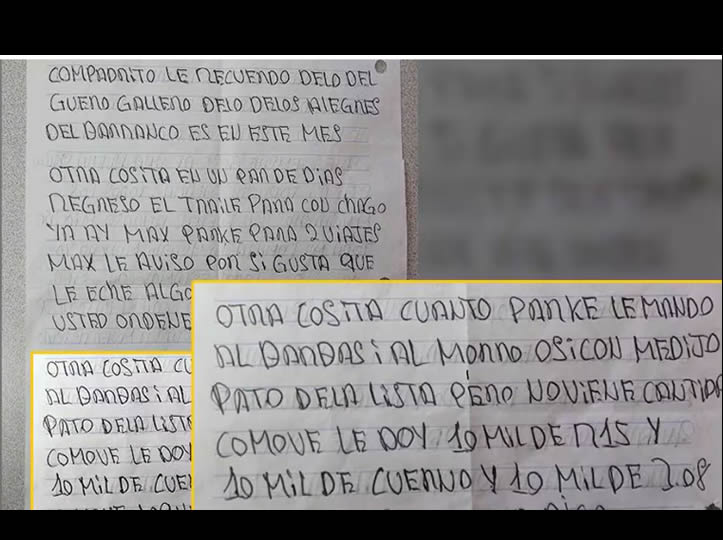 COMPADRITO LE RECUERDO DELO DEL
GUERO GALLERO DELO DELOS ALEGRES
DEL BARRANCO ES EN ESTE MES
OTRA COSITA EN UN PAR DE DIAS
REGRESO EL TRAILE PARA CON CHAGO
YA AY MAX PARKE PARA 2 VIAJES
MAX LE AVISO POR SI GUSTA QUE
LE ECHE ALGO
USTED ORDENE
OTRA COSITA CU
AL BARBAS i AL
PATO DELA LISTA
COMOVE LE DOY
10 MIL DE CUER
OTRA COSITA CUANTO PARKE LE MANDO
AL BARBAS i AL MORRO OSICON MEDIJO
PATO DELA LISTA PERO NOVIENE CANTIDA
COMOVE LE DOY 10 MIL DE R15 Y
10 MIL DE CUERNO Y 10 MIL DE 3.08